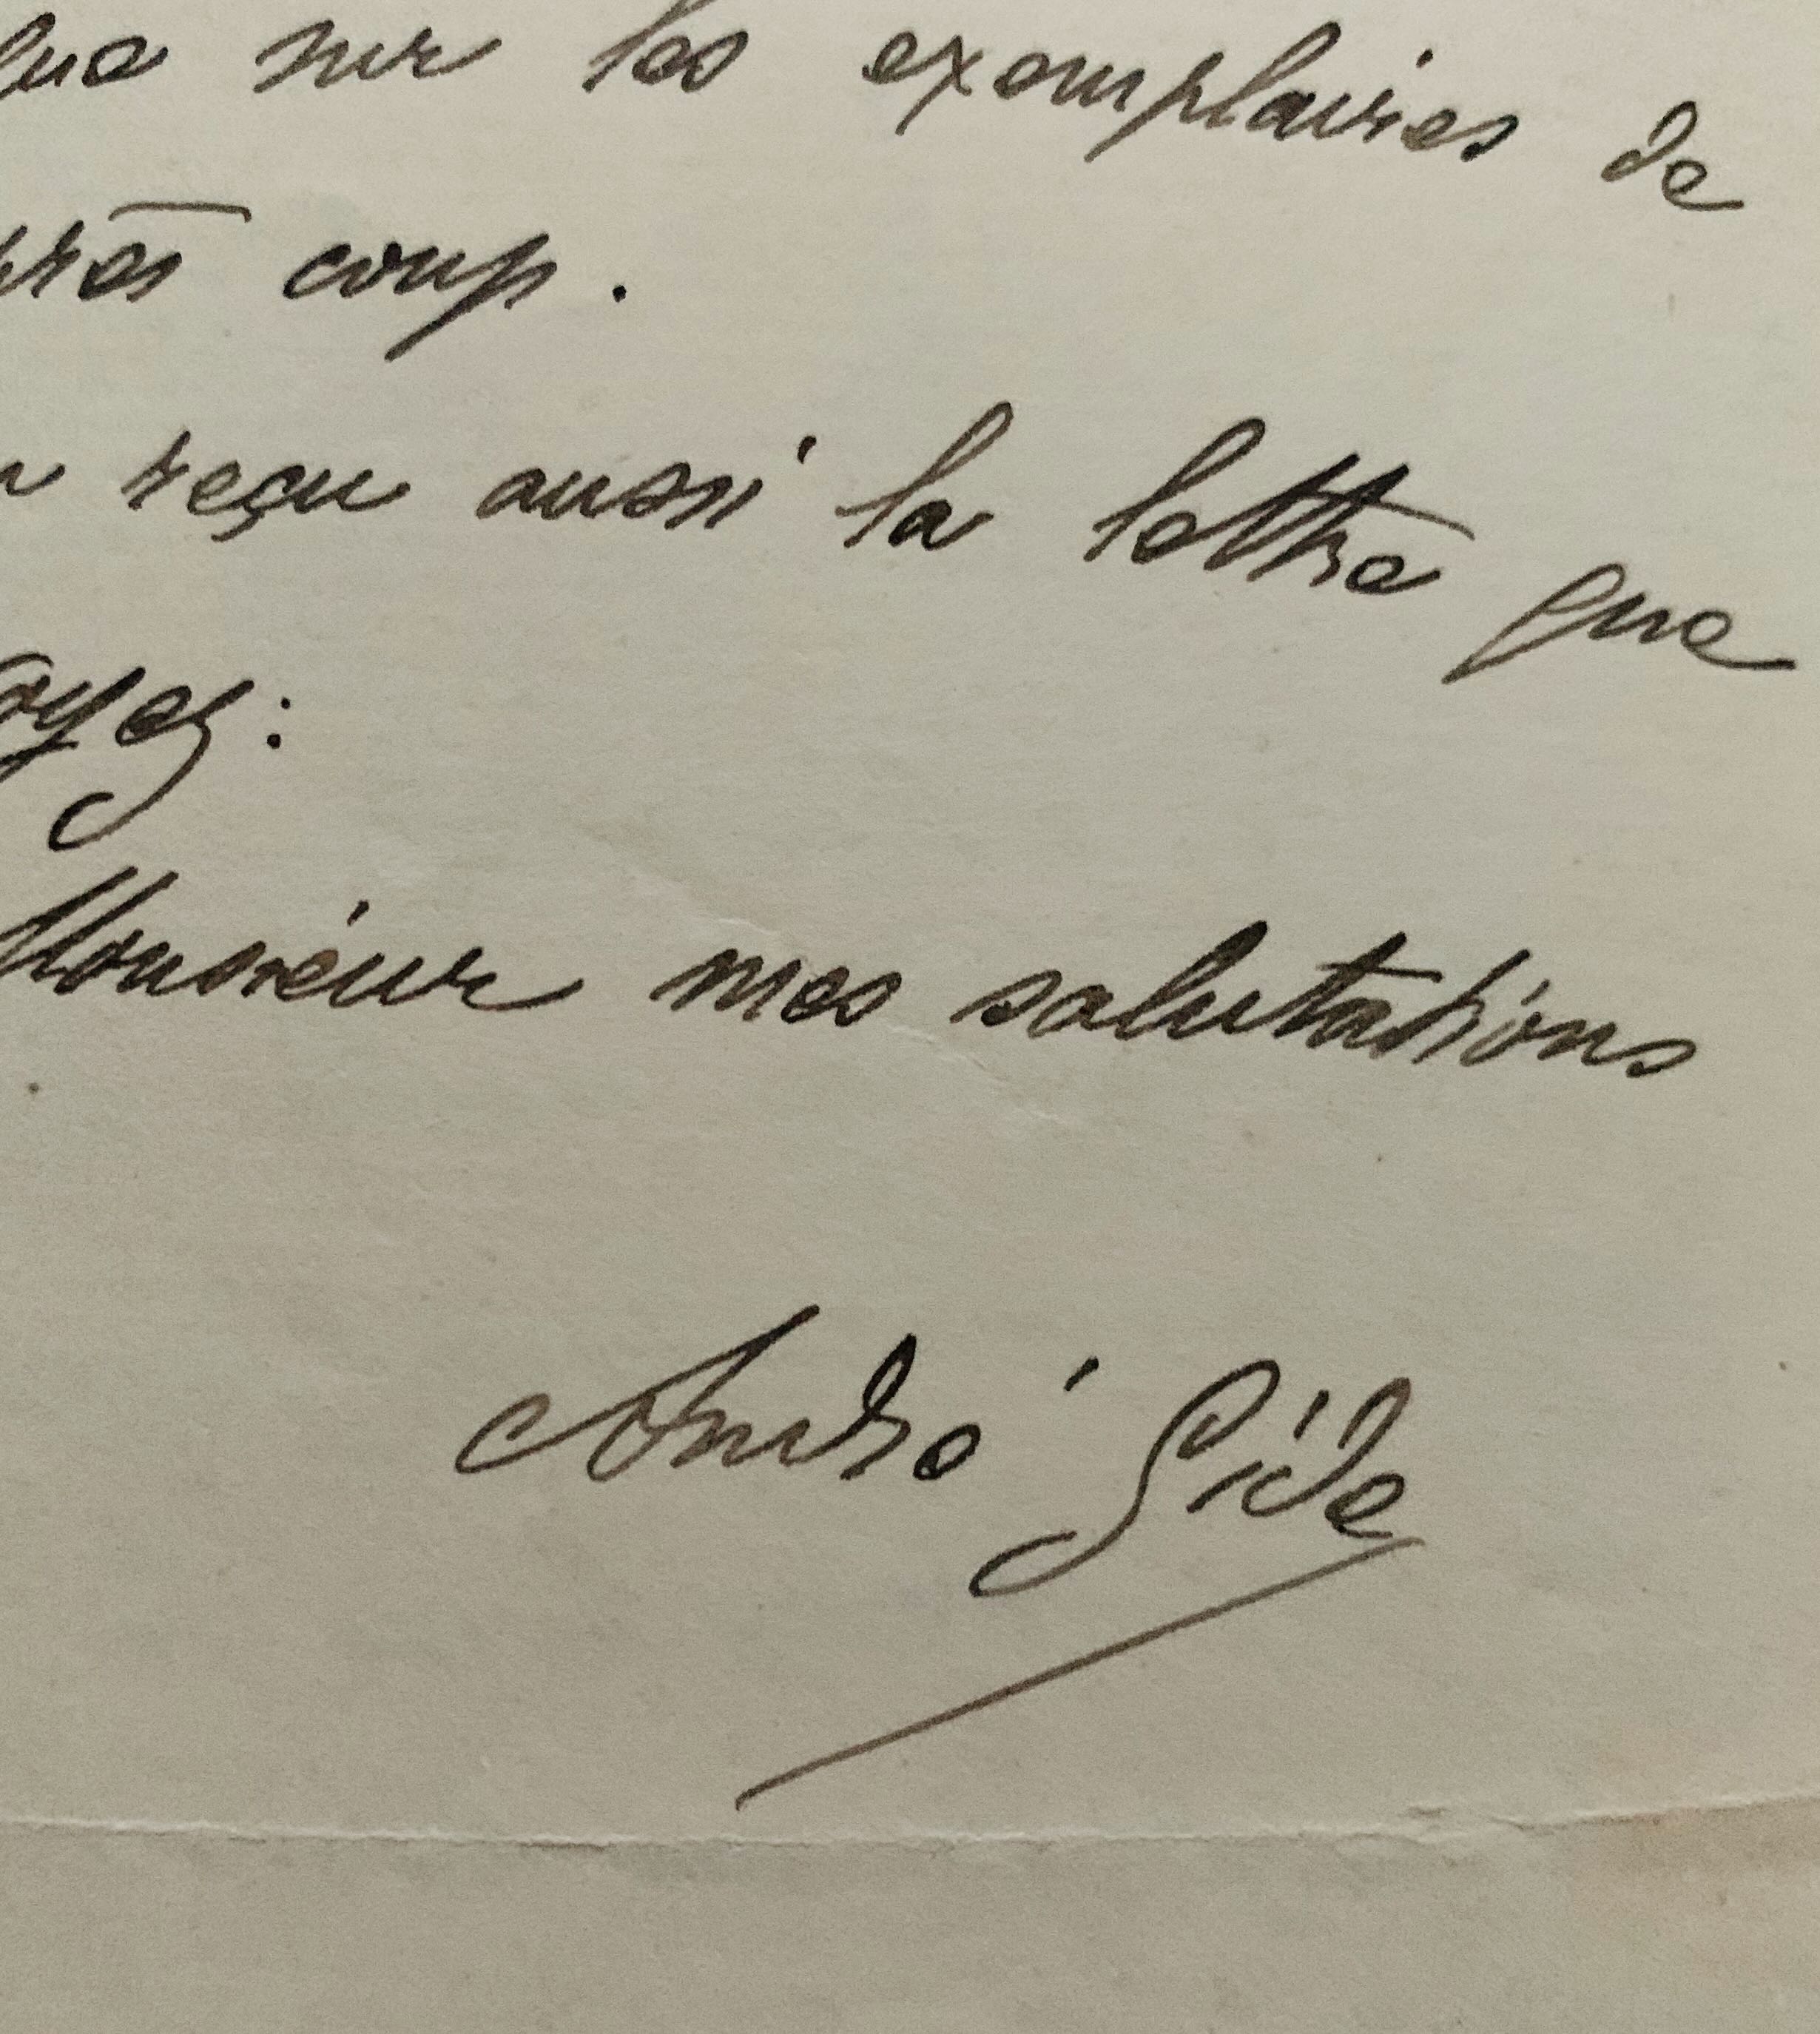 que sur les exemplaires de
près coup.
reçu aussi la lettre que
oyez:
Monsieur mes salutations
André Gide